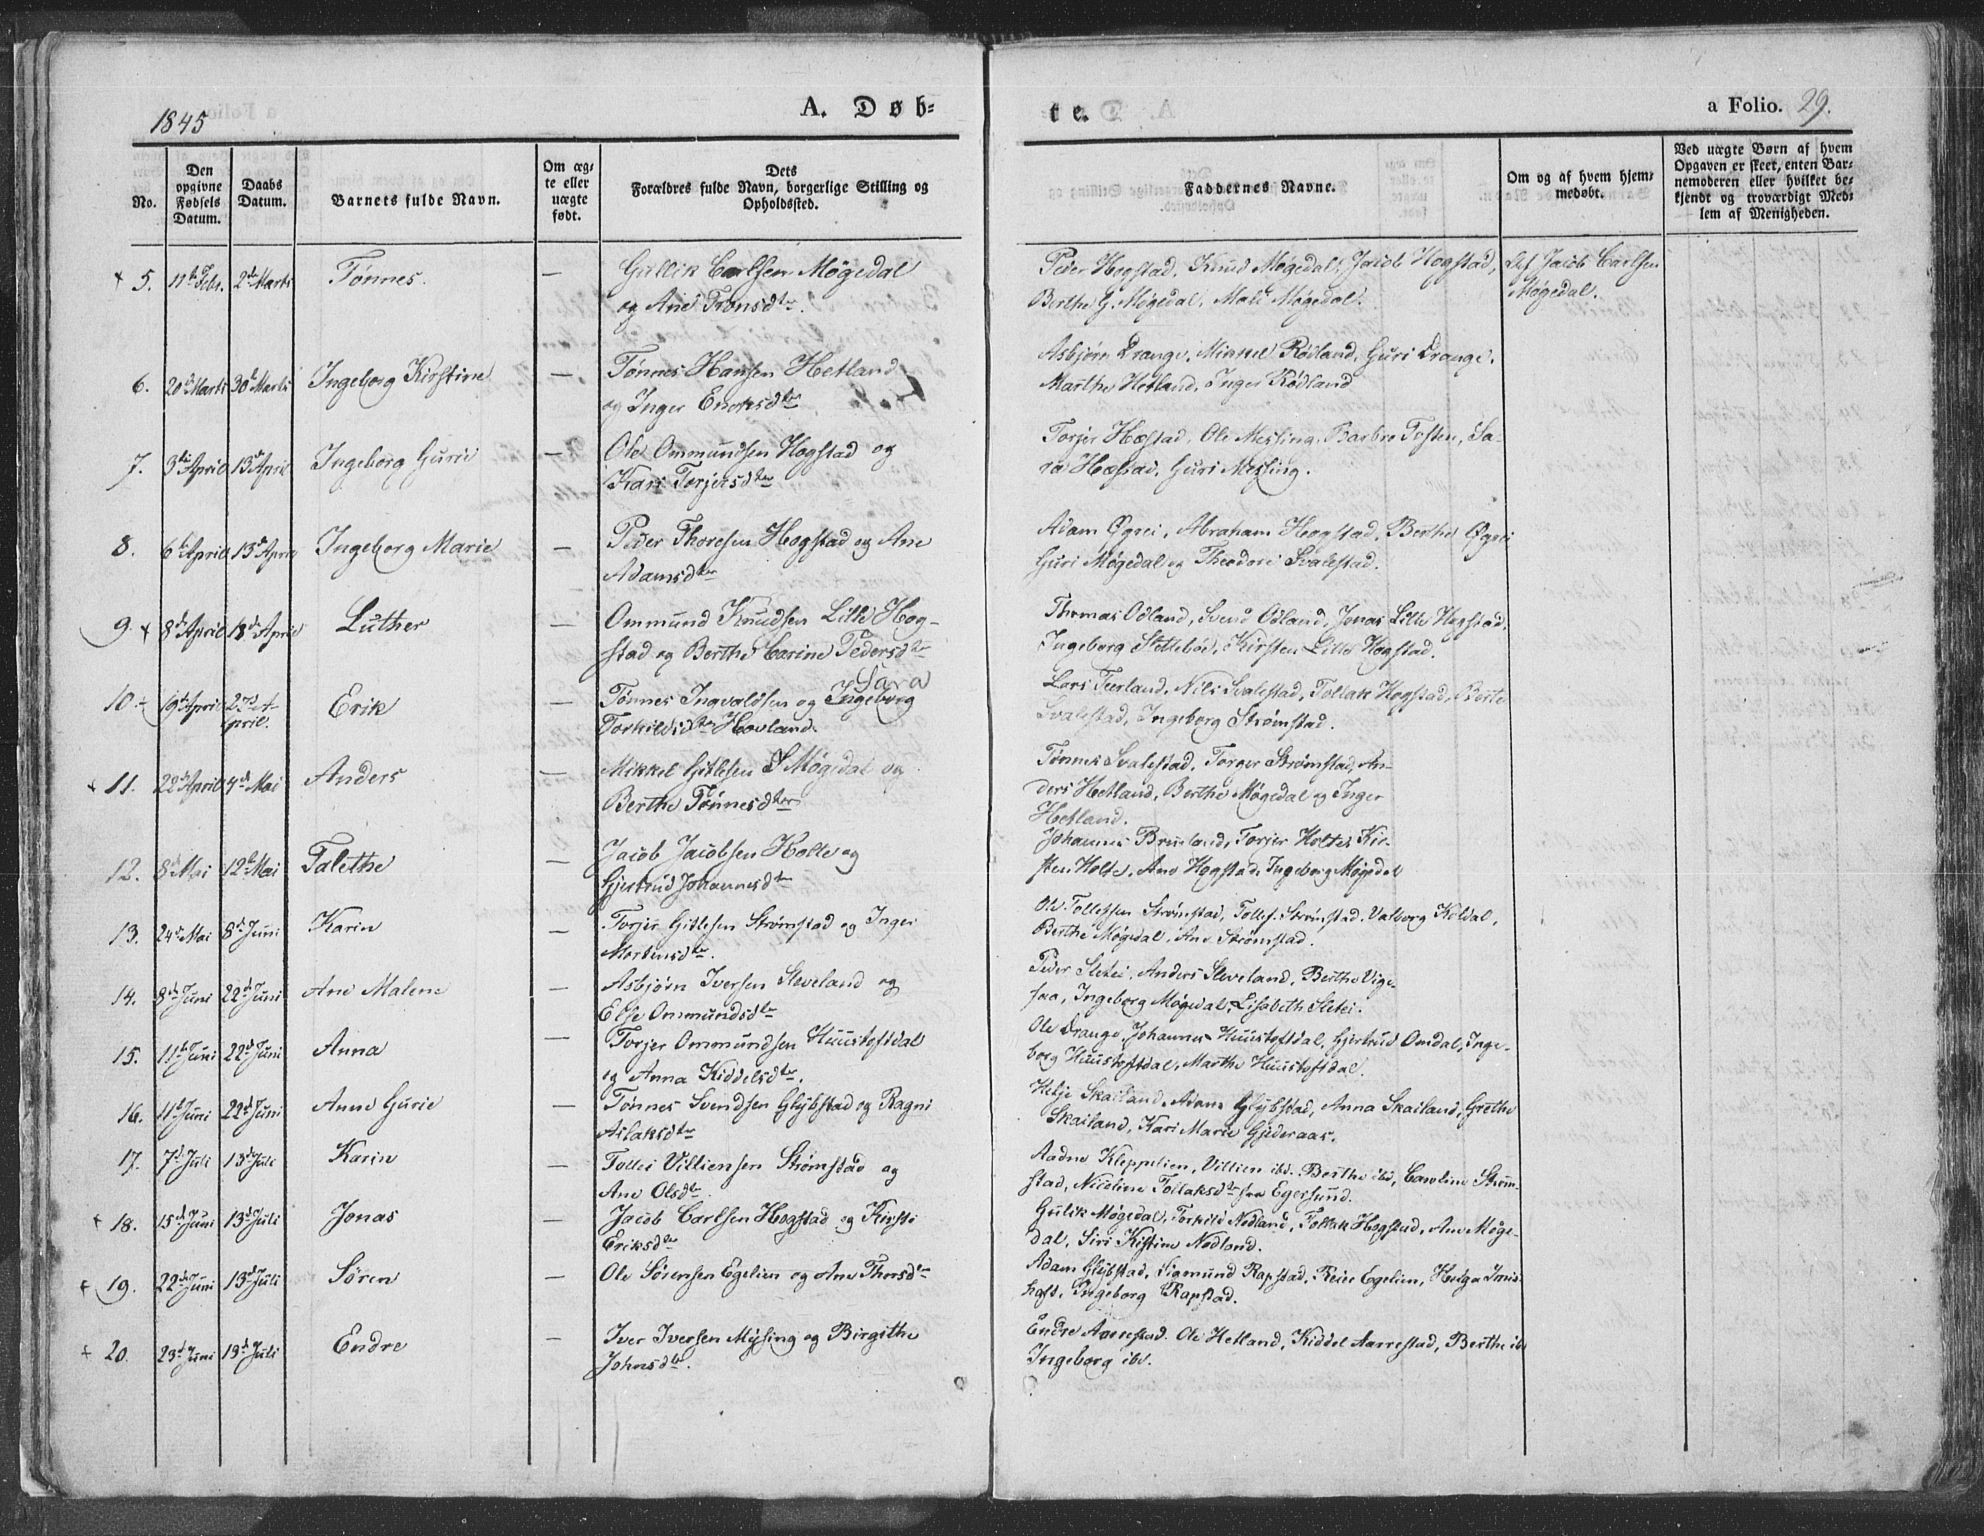 1845
A. Døb=
te.
a Folio. 29.
No.
Den opgivne Fødsels Datum.
Daabs Datum.
Barnets fulde Navn.
Om ægte eller uægte født.
Dets Forældres fulde Navn, borgerlige Stilling og Opholdssted.
Faddernes Navne.
Om og af hvem hjemmedøbt.
Ved uægte Børn af hvem Opgaven er skeet, enten Barnemoderen eller hvilket bekjendt og troværdigt Medlem af Menigheden.
5. 11te Febr. 2de Marts Tønnes. — Gullik Carlsen Møgedal
og Ane Tronsdtr.
Peder Hogstad, Knud Møgedal, Jacob Hogstad,
Berthe G. Møgedal, Mali Møgedal.
Jacob Carlsen
Møgedal.
6. 20de Marts 30te Marts Ingeborg Kirstine — Tønnes Hansen Hetland
og Inger Enoksdtr
Asbjørn Drange, Mikkel Rødland, Guri Drange,
Marthe Hetland, Inger Rødland
7. 3die April 13de April Ingeborg Gurie — Ole Ommundsen Hogstad og
Kari Torjersdtr
Torjer Hæstad, Ole Messing, Barbro Tosten, Sa-
ra Hæstad, Guri Messing.
8. 6te April 13de April Ingeborg Marie — Peder Thoresen Hogstad og Ane
Adamsdtr
Adam Øgrei, Abraham Hogstad, Berthe Øgrei
Guri Møgedal og Theodore Svalestad.
9. 8de April 18de April Luther — Ommund Knudsen Lille Hog-
stad og Berthe Carine Pedersdtr
Thomas Odland, Svend Odland, Jonas Lille Hogstad,
Ingeborg Stettebø, Kirsten Lille Hogstad.
10. 19de April 2 April. Erik Sara
Tønnes Ingvaldsen og Ingeborg
Torkildsdtr Hovland.
Lars Teerland, Nils Svalestad, Tollak Hogstad, Berte
Svalestad, Ingeborg Strømstad.
11. 22de April 4de Mai Anders — Mikkel Gitlesen Møgedal og
Berthe Tønnesdtr
Tønnes Svalestad, Torger Strømstad, An-
ders Hetland, Berthe Møgedal og Inger
Hetland.
12. 8de Mai 12te Mai Talethe — Jacob Jacobsen Holte og
Gjertrud Johannesdtr
Johannes Bruuland, Torjer Holte, Kir-
sten Holte, Ane Hogstad, Ingeborg Møgedal
13. 24de Mai 8de Juni Karin — Torjer Gitlesen Strømstad og Inger
Mortensdtr.
Ole Tollefsen Strømstad, Tollef Strømstad, Valborg Koldal,
Berthe Møgedal, Ane Strømstad.
14. 8de Juni 22de Juni Ane Malene — Asbjørn Iversen Sleveland og
Else Ommundsdtr
Peder Sletei, Anders Sleveland, Berthe Vige-
saa, Ingeborg Møgedal, Lisabeth Sletei.
15. 11te Juni 22de Juni Anna — Torjer Ommundsen Huustoftdal
og Anna Kiddelsdtr.
Ole Drange, Johannes Huustoftdal, Gjertrud Omdal, Inge-
borg Huustoftdal, Marthe Huustoftdal.
16. 11te Juni 22de Juni Anne Gurie — Tønnes Svendsen Glybstad og Ragni
Aslaksdtr
Helje Skailand, Adam Glybstad, Anna Skailand, Grethe
Skailand, Kari Marie Gyderaas.
17. 7de Juli 13de Juli Karin — Tollei Villiensen Strømstad og
Ane Olsdtr
Aadne Kleppelien, Villien ibd. Berthe ibd, Caroline Strøm-
stad, Nicoline Tollaksdtr fra Egersund.
18. 15de Juni 13de Juli Jonas — Jacob Carlsen Hogstad og Kirsti
Eriksdtr
Gulik Møgedal, Torkild Nodland, Tollak Hogstad, Ane Møge-
dal, Siri Kistine Nodland.
19. 22de Juni 13de Juli Søren — Ole Sørensen Egelien og Ane Thorsdtr
Adam Glybstad, Sigmund Rapstad, Reier Egelien, Helga
Ingeborg Rapstad.
20. 23de Juni 13de Juli Endre — Iver Iversen Mysing og Birgithe
Johnsdtr.
Endre Aarrestad. Ole Hetland, Kiddel Aarrestad, Berthe ib
Ingeborg ibd.